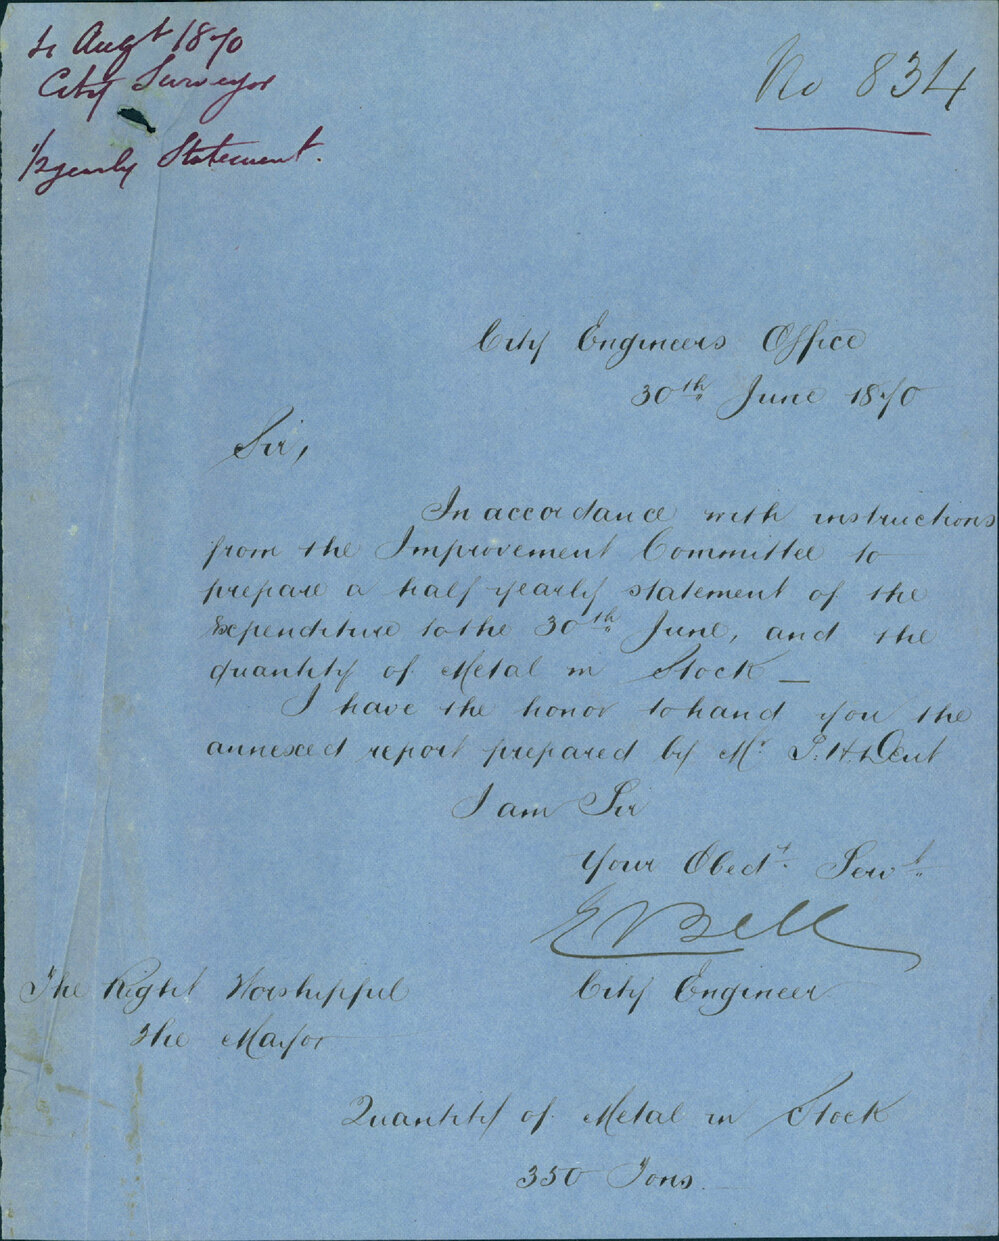 4 Augt 1870
City Surveyor
1/2 yearly Statement.
No 834
City Engineers Office
30th June 1870
Sir,
In accordance with instructions
from the Improvement Committee to
prepare a half yearly statement of the
Expenditure to the 30th June, and the
quantity of Metal in Stock —
I have the honor to hand you the
annexed report prepared by Mr. J. H. Dent
I am Sir
Your Obedt. Servt.
E Bell
City Engineer
The Right Worshipful
The Mayor
Quantity of Metal in Stock
350 Tons.